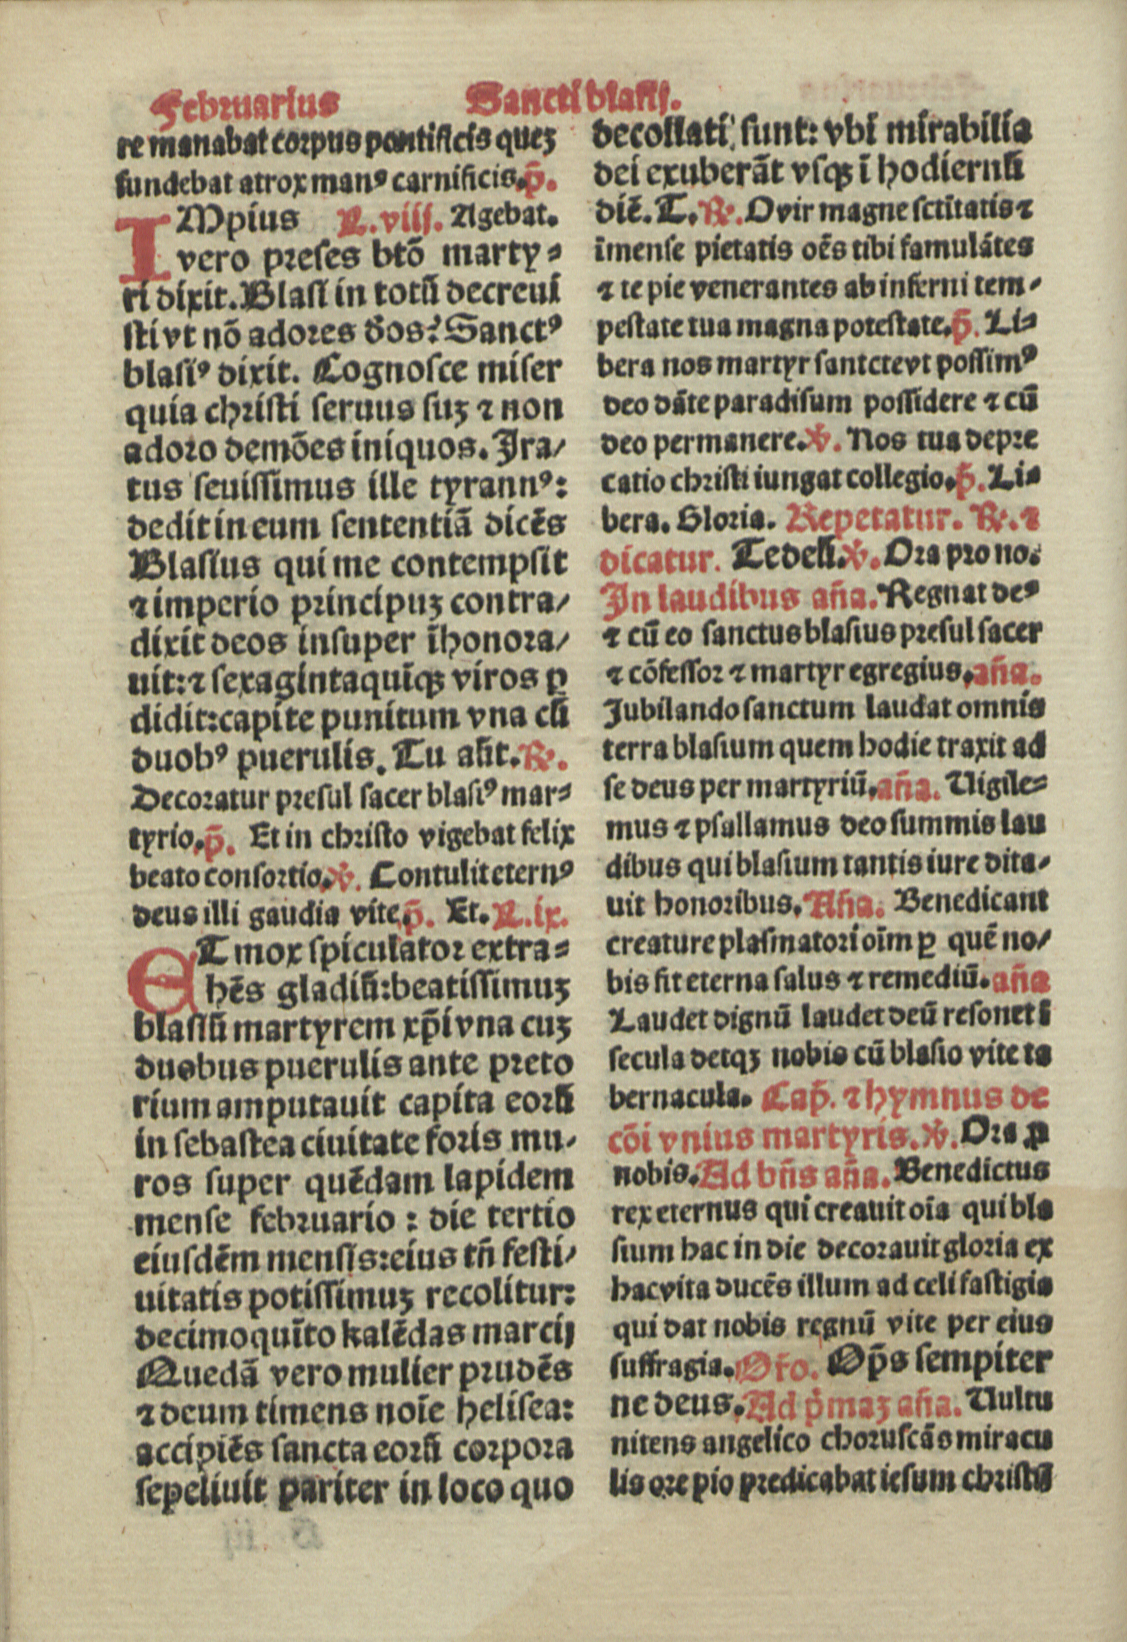 Februarius Sancti blasij.
re manabat corpus pontificis quez
fundebat atrox manꝰ carnificis. p̄.
IMpius L. viij. Agebat.
vero preses btō marty⸗
ri dixit. Blasi in totū decreui
sti vt nō adores d̄os? Sanctꝰ
blasiꝰ dixit. Cognosce miser
quia christi seruus suꝫ ⁊ non
adoro demōes iniquos. Ira/
tus seuissimus ille tyrannꝰ:
dedit in eum sententiā dicēs
Blasius qui me contempsit
⁊ imperio principuꝫ contra/
dixit deos insuper īhonora/
uit: ⁊ sexagintaquīqꝫ viros ꝑ
didit: capite punitum vna cū
duobꝰ puerulis. Tu aūt. ℟.
Decoratur presul sacer blasiꝰ mar⸗
tyrio. p̄. Et in christo vigebat felix
beato consortio. ℣. Contulit eternꝰ
deus illi gaudia vite. p̄. Et. L. ix.
ET mox spiculator extra⸗
hēs gladiū: beatissimuꝫ
blasiū martyrem xp̄i vna cuꝫ
duobus puerulis ante preto
rium amputauit capita eorū
in sebastea ciuitate foris mu/
ros super quēdam lapidem
mense februario : die tertio
eiusdēm mensis: eius tn̄ festi/
uitatis potissimuꝫ recolitur:
decimoquīto kalēdas marcij
Quedā vero mulier prudēs
⁊ deum timens noīe helisea:
accipiēs sancta eorū corpora
sepeliuit pariter in loco quo
decollati sunt: vbi mirabilia
dei exuberāt vsqꝫ ī hodiernū
diē. T. ℟. O vir magne sctītatis ⁊
īmense pietatis oēs tibi famulātes
⁊ te pie venerantes ab inferni tem/
pestate tua magna potestate. p̄. Li⸗
bera nos martyr santcte vt possimꝰ
deo dāte paradisum possidere ⁊ cū
deo permanere. ℣. Nos tua depre
catio christi iungat collegio. p̄. Li⸗
bera. Gloria. Repetatur. ℟. ⁊
dicatur. Tedeū. ℣. Ora pro no.
In laudibus an̄a. Regnat deꝰ
⁊ cū eo sanctus blasius presul sacer
⁊ cōfessor ⁊ martyr egregius. an̄a.
Jubilando sanctum laudat omnis
terra blasium quem hodie traxit ad
se deus per martyriū. an̄a. Uigile⸗
mus ⁊ psallamus deo summis lau
dibus qui blasium tantis iure dita/
uit honoribus. An̄a. Benedicant
creature plasmatori oīm ꝑ quē no/
bis fit eterna salus ⁊ remediū. an̄a
Laudet dignū laudet deū resonet ī
secula detqꝫ nobis cū blasio vite ta
bernacula. Cap̄. ⁊ hymnus de
cōi vnius martyris. ℣. Ora ꝓ
nobis. Ad bn̄s an̄a. Benedictus
rex eternus qui creauit oīa qui bla
sium hac in die decorauit gloria ex
hac vita ducēs illum ad celi fastigia
qui dat nobis regnū vite per eius
suffragia. Or̄o. Op̄s sempiter
ne deus. Ad p̄maꝫ an̄a. Uultu
nitens angelico choruscās miracu
lis ore pio predicabat iesum christū